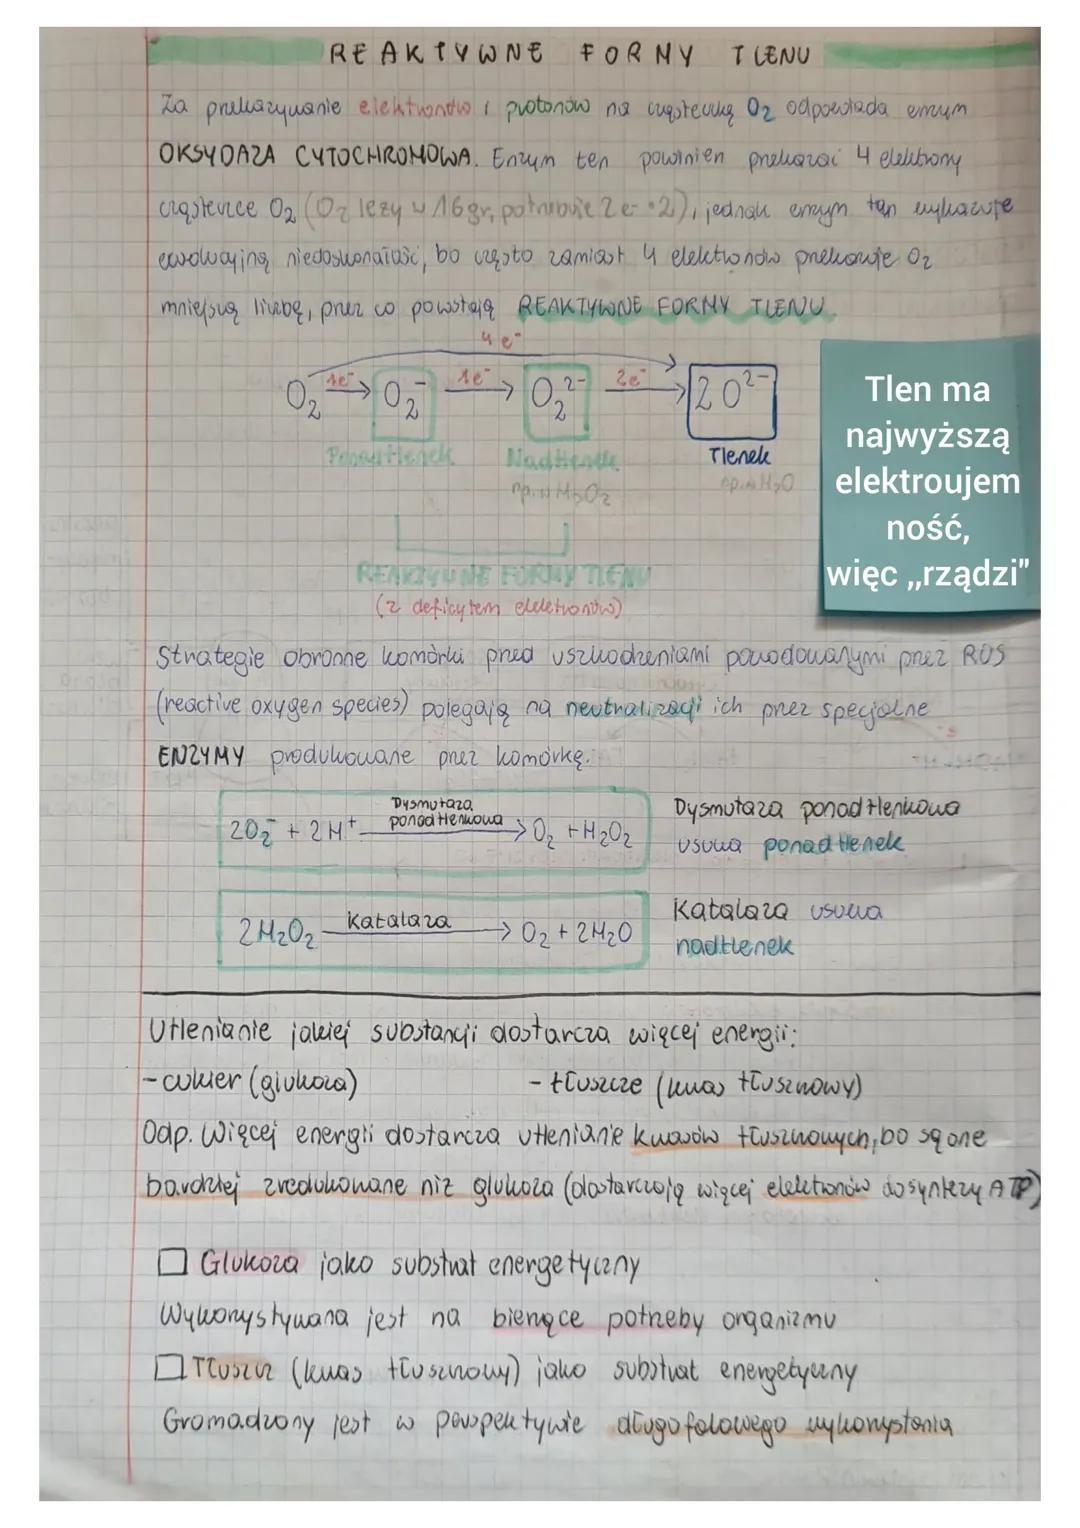 REAKTYWNE FORMY TLENU
Za przekazywanie elektronów i protonów na cząsteczkę O₂ odpowiada enzym
OKSYDAZA CYTOCHROMOWA. Enzym ten powinien przekazać 4 elektrony
cząsteczce O₂ (O₂ leży w 16gr, potrzebuje 2e⁻·2), jednak enzym ten wykazuje
ewolucyjną niedoskonałość, bo często zamiast 4 elektronów przekazuje O₂
mniejszą liczbę, przez co powstają REAKTYWNE FORMY TLENU.
4e⁻
O₂ 1e⁻→ O₂⁻ 1e⁻→ O₂²⁻ 2e⁻→ 2O²⁻
Ponadtlenek Nadtlenek Tlenek
np. w H₂O₂ np. w H₂O
REAKTYWNE FORMY TLENU
(z deficytem elektronów)
Tlen ma
najwyższą
elektroujem
ność,
więc ,,rządzi"
Strategie obronne komórki przed uszkodzeniami powodowanymi przez ROS
(reactive oxygen species) polegają na neutralizacji ich przez specjalne
ENZYMY produkowane przez komórkę:
2O₂⁻ + 2H⁺ Dysmutaza ponadtlenkowa → O₂ + H₂O₂
Dysmutaza ponadtlenkowa
usuwa ponadtlenek
2H₂O₂ Katalaza → O₂ + 2H₂O
Katalaza usuwa
nadtlenek
Utlenianie jakiej substancji dostarcza więcej energii:
- cukier (glukoza) - tłuszcze (kwas tłuszczowy)
Odp. Więcej energii dostarcza utlenianie kwasów tłuszczowych, bo są one
bardziej zredukowane niż glukoza (dostarczają więcej elektronów do syntezy ATP)
□ Glukoza jako substrat energetyczny
Wykorzystywana jest na bieżące potrzeby organizmu
□ Tłuszcz (kwas tłuszczowy) jako substrat energetyczny
Gromadzony jest w perspektywie długofalowego wykorzystania